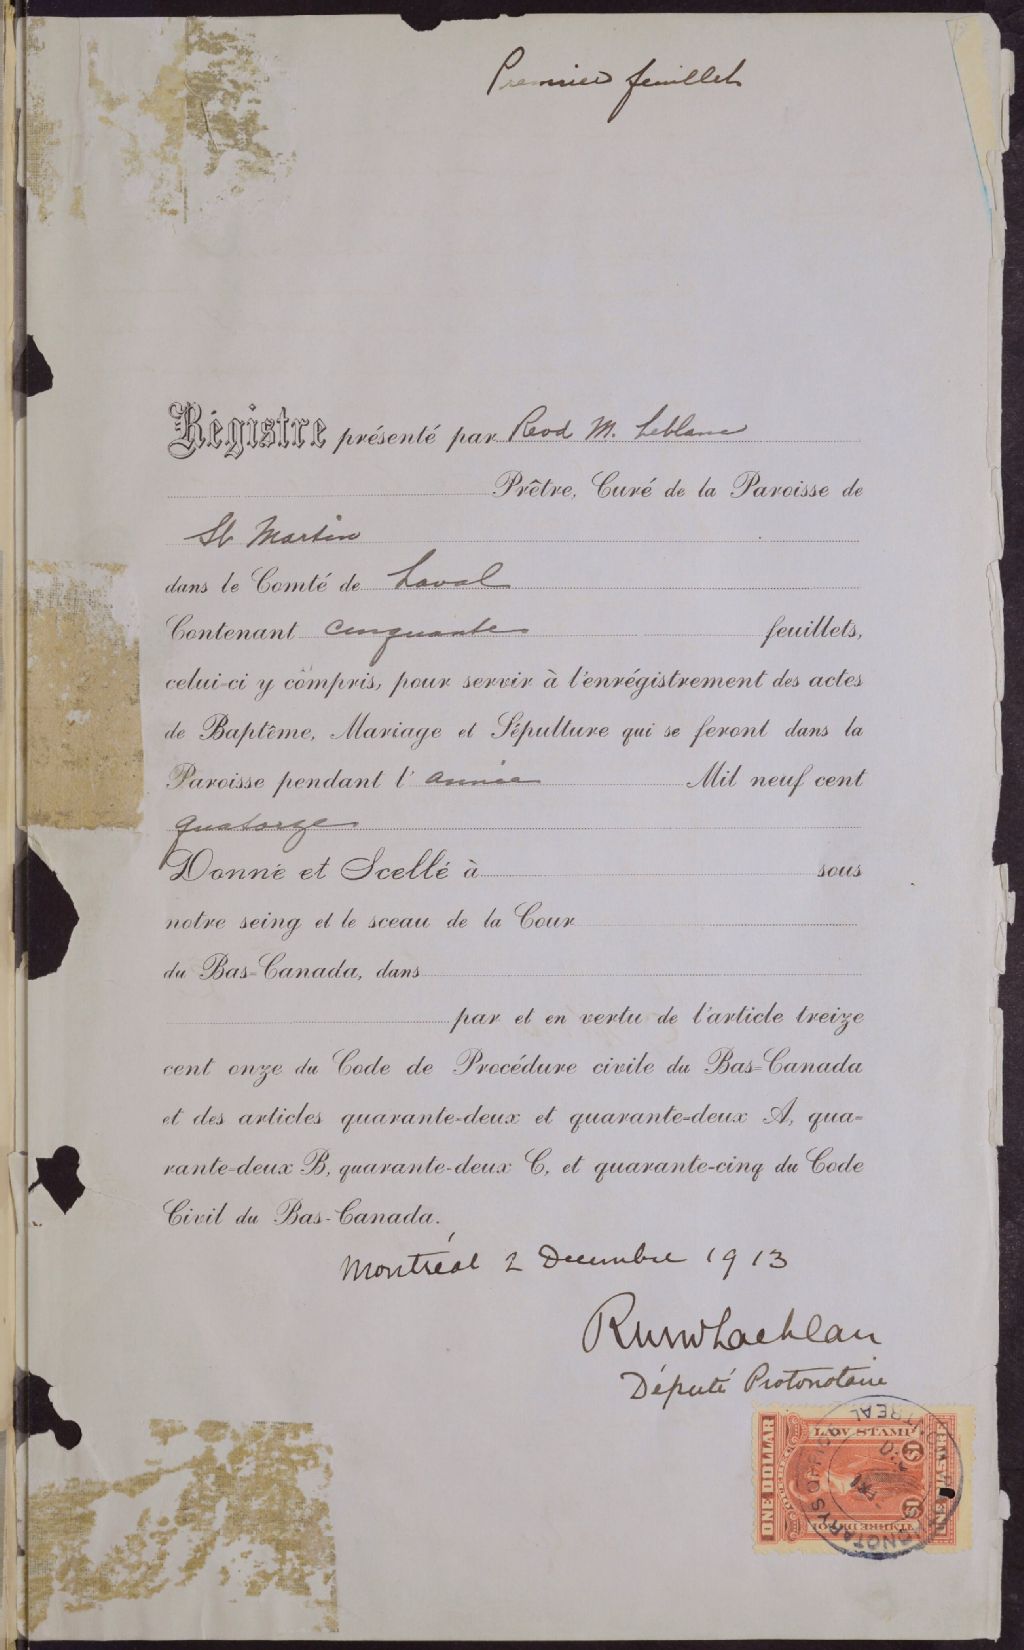 Premier feuillet
Régistre présenté par Revd M. Leblanc
Prêtre, Curé de la Paroisse de
St Martin
dans le Comté de Laval
Contenant cinquante feuillets,
celui-ci y compris, pour servir à l'enrégistrement des actes
de Baptême, Mariage et Sépulture qui se feront dans la
Paroisse pendant l'année Mil neuf cent
quatorze
Donné et Scellé à sous
notre seing et le sceau de la Cour
du Bas-Canada, dans
par et en vertu de l'article treize
cent onze du Code de Procédure civile du Bas-Canada
et des articles quarante-deux et quarante-deux A, qua-
rante-deux B, quarante-deux C, et quarante-cinq du Code
Civil du Bas-Canada.
Montréal 2 Decembre 1913
Député Protonotaire
ONE DOLLAR
LAW STAMP
$1
$1